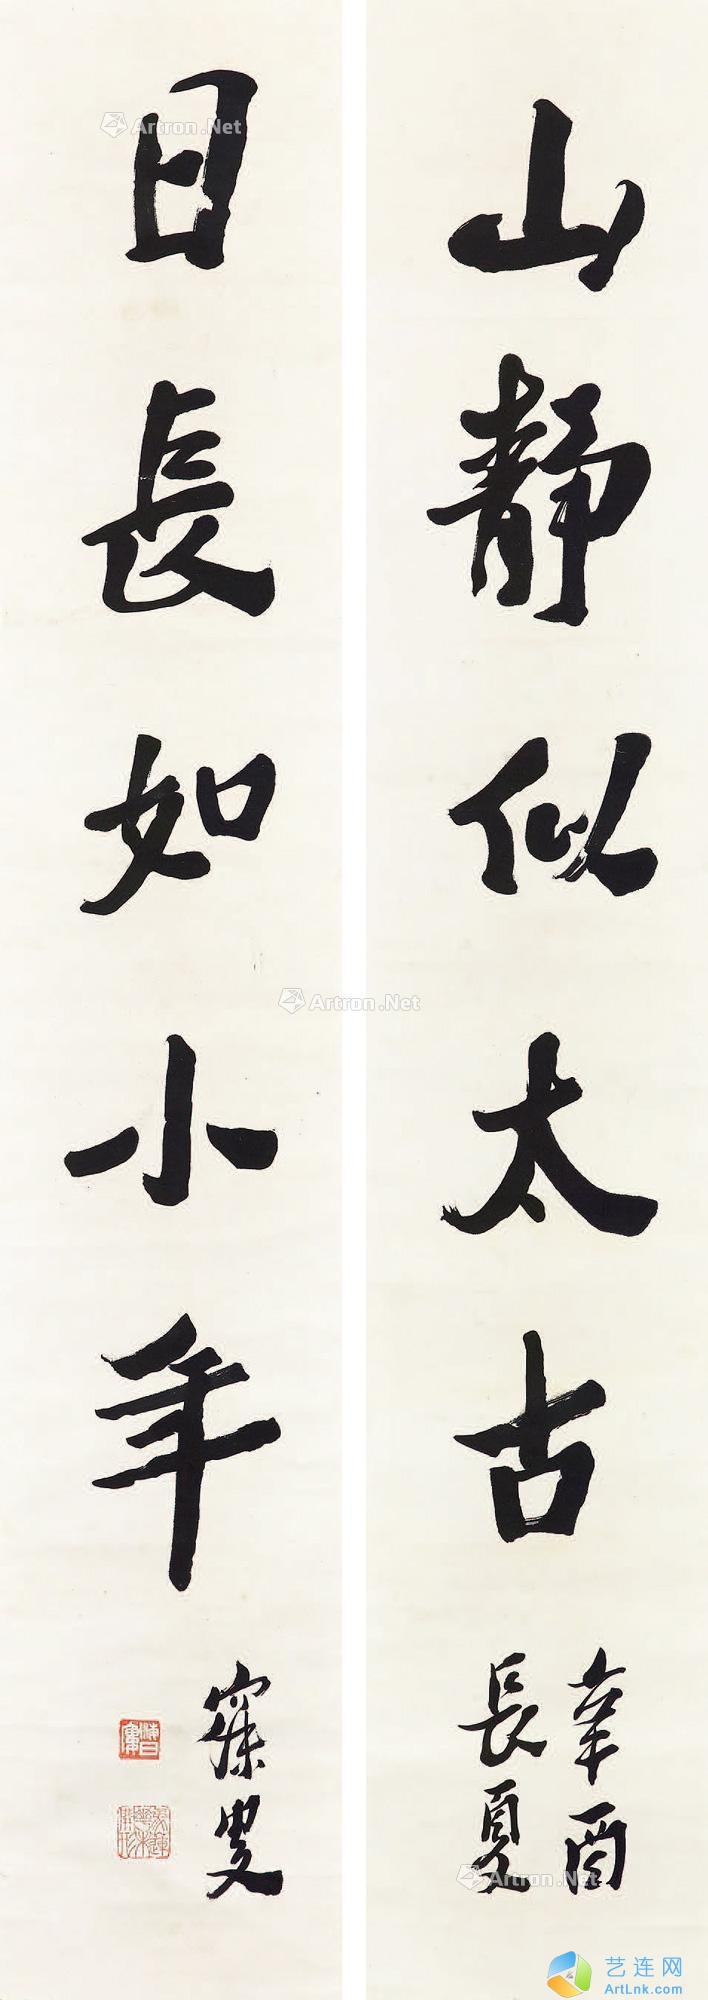 山靜似太古
辛酉
長夏
日長如小年
寐叟
Artron.Net
Artron.Net
Artron.Net
艺连网
ArtLnk.com